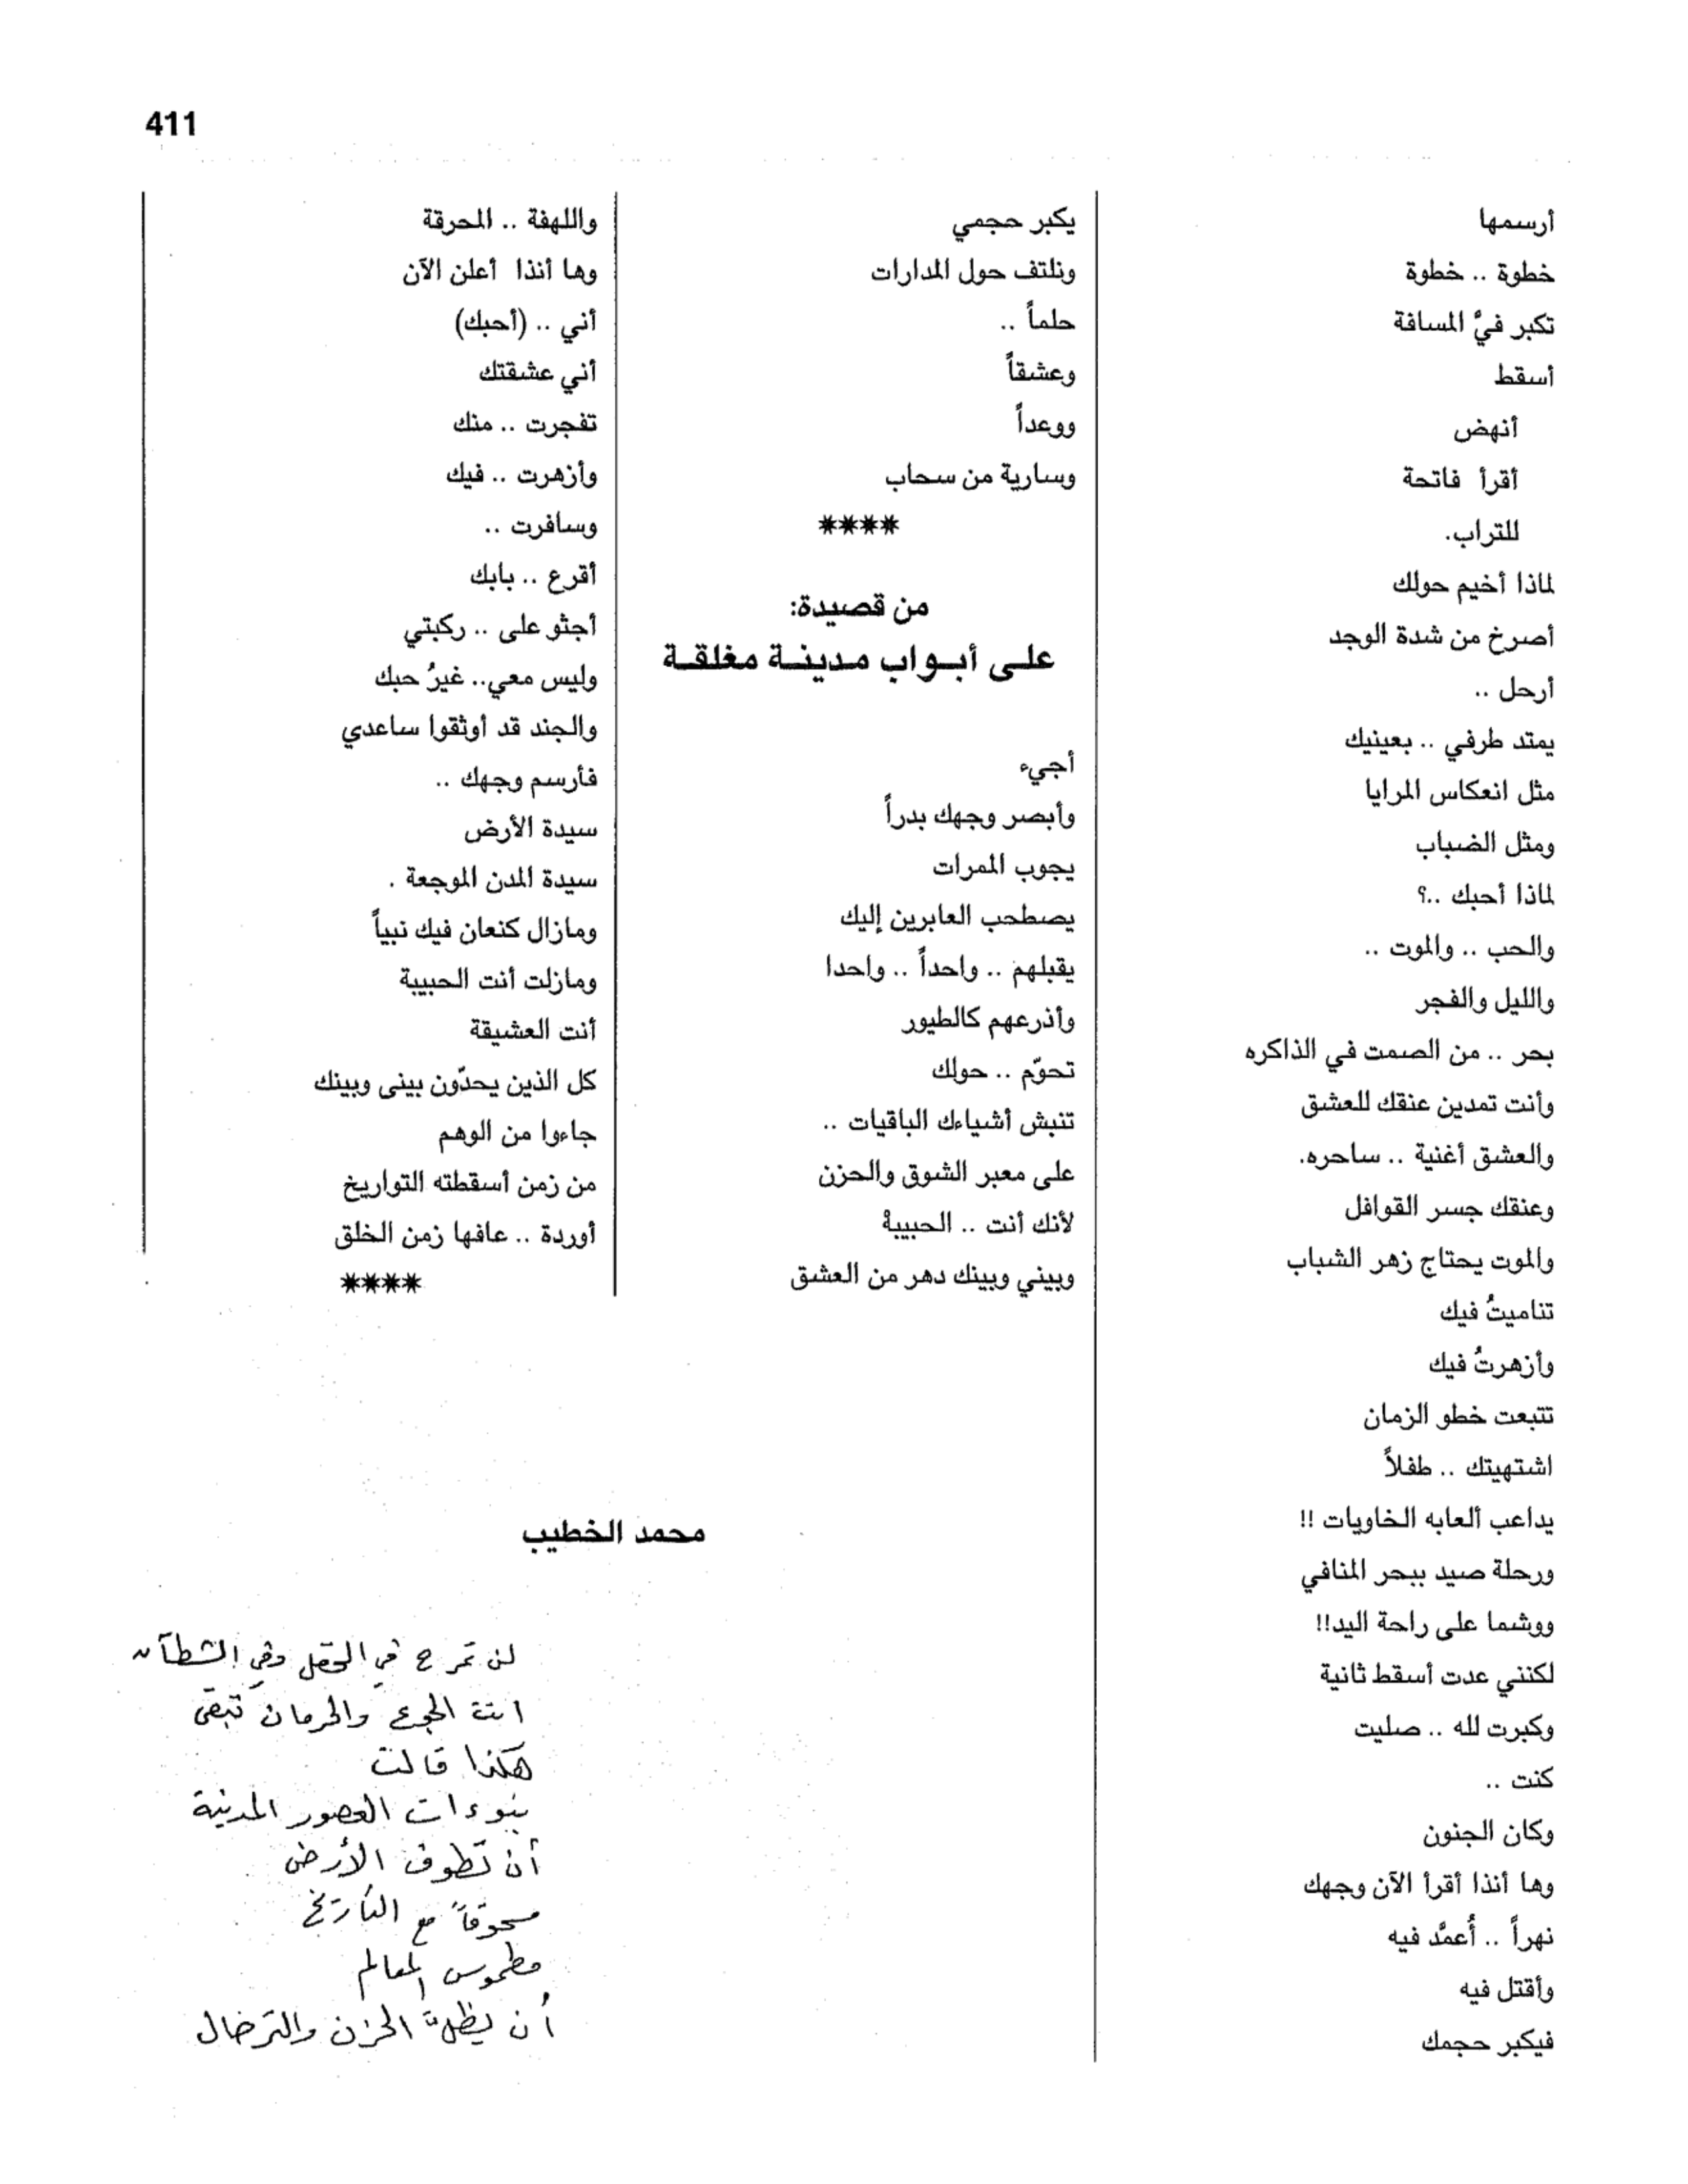 411
أرسمها
خطوة .. خطوة
تكبر فيَّ المسافة
أسقط
أنهض
أقرأ فاتحة
للتراب.
لماذا أخيم حولك
أصرخ من شدة الوجد
أرحل ..
يمتد طرفي .. بعينيك
مثل انعكاس المرايا
ومثل الضباب
لماذا أحبك ..؟
والحب .. والموت ..
والليل والفجر
بحر .. من الصمت في الذاكره
وأنت تمدين عنقك للعشق
والعشق أغنية .. ساحره.
وعنقك جسر القوافل
والموت يحتاج زهر الشباب
تناميتُ فيك
وأزهرتُ فيك
تتبعت خطو الزمان
اشتهيتك .. طفلاً
يداعب ألعابه الخاويات !!
ورحلة صيد ببحر المنافي
ووشما على راحة اليد!!
لكنني عدت أسقط ثانية
وكبرت لله .. صليت
كنت ..
وكان الجنون
وها أنذا أقرأ الآن وجهك
نهراً .. أُعمَّد فيه
وأقتل فيه
فيكبر حجمك
يكبر حجمي
ونلتف حول المدارات
حلماً ..
وعشقاً
ووعداً
وسارية من سحاب
****
من قصيدة:
على أبواب مدينة مغلقة
أجيء
وأبصر وجهك بدراً
يجوب الممرات
يصطحب العابرين إليك
يقبلهم .. واحداً .. واحدا
وأذرعهم كالطيور
تحوّم .. حولك
تنبش أشياءك الباقيات ..
على معبر الشوق والحزن
لأنك أنت .. الحبيبةْ
وبيني وبينك دهر من العشق
واللهفة .. المحرقة
وها أنذا أعلن الآن
أني .. (أحبك)
أني عشقتك
تفجرت .. منك
وأزهرت .. فيك
وسافرت ..
أقرع .. بابك
أجثو على .. ركبتي
وليس معي.. غيرُ حبك
والجند قد أوثقوا ساعدي
فأرسم وجهك ..
سيدة الأرض
سيدة المدن الموجعة .
ومازال كنعان فيك نبياً
ومازلت أنت الحبيبة
أنت العشيقة
كل الذين يحدّون بينى وبينك
جاءوا من الوهم
من زمن أسقطته التواريخ
أوردة .. عافها زمن الخلق
****
محمد الخطيب
لن تمرح في الحقل وفي الشطآن
انت الجوع والحرمان تبقى
هكذا قالت
نبوءات العصور المدنية
أن تطوف الأرض
مسحوقاً مع التأريخ
مطموس المعالم
أن يظلّ الحزن والترحال